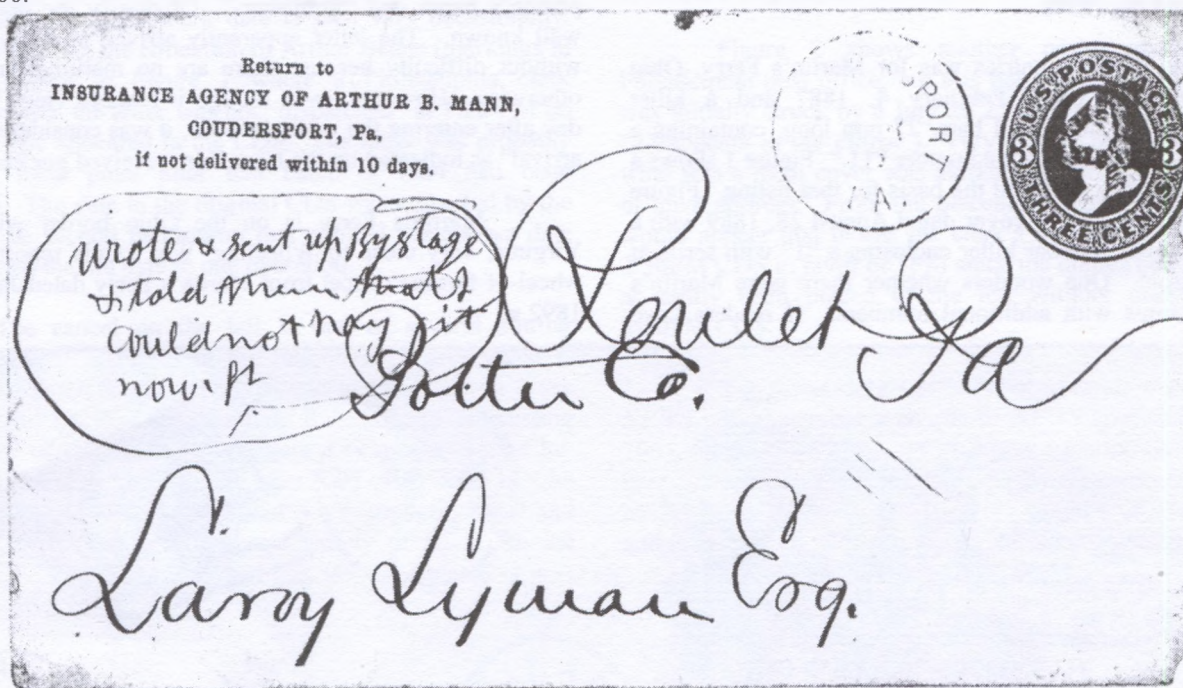 Return to
INSURANCE AGENCY OF ARTHUR B. MANN,
COUDERSPORT, Pa.
if not delivered within 10 days.
SPORT
PA
U.S. POSTAGE
3 3
THREE CENTS
wrote & sent up By stage
& told them that I
could not pay it
now.
Roulet Pa
Potter Co.
Laroy Lyman Esq.